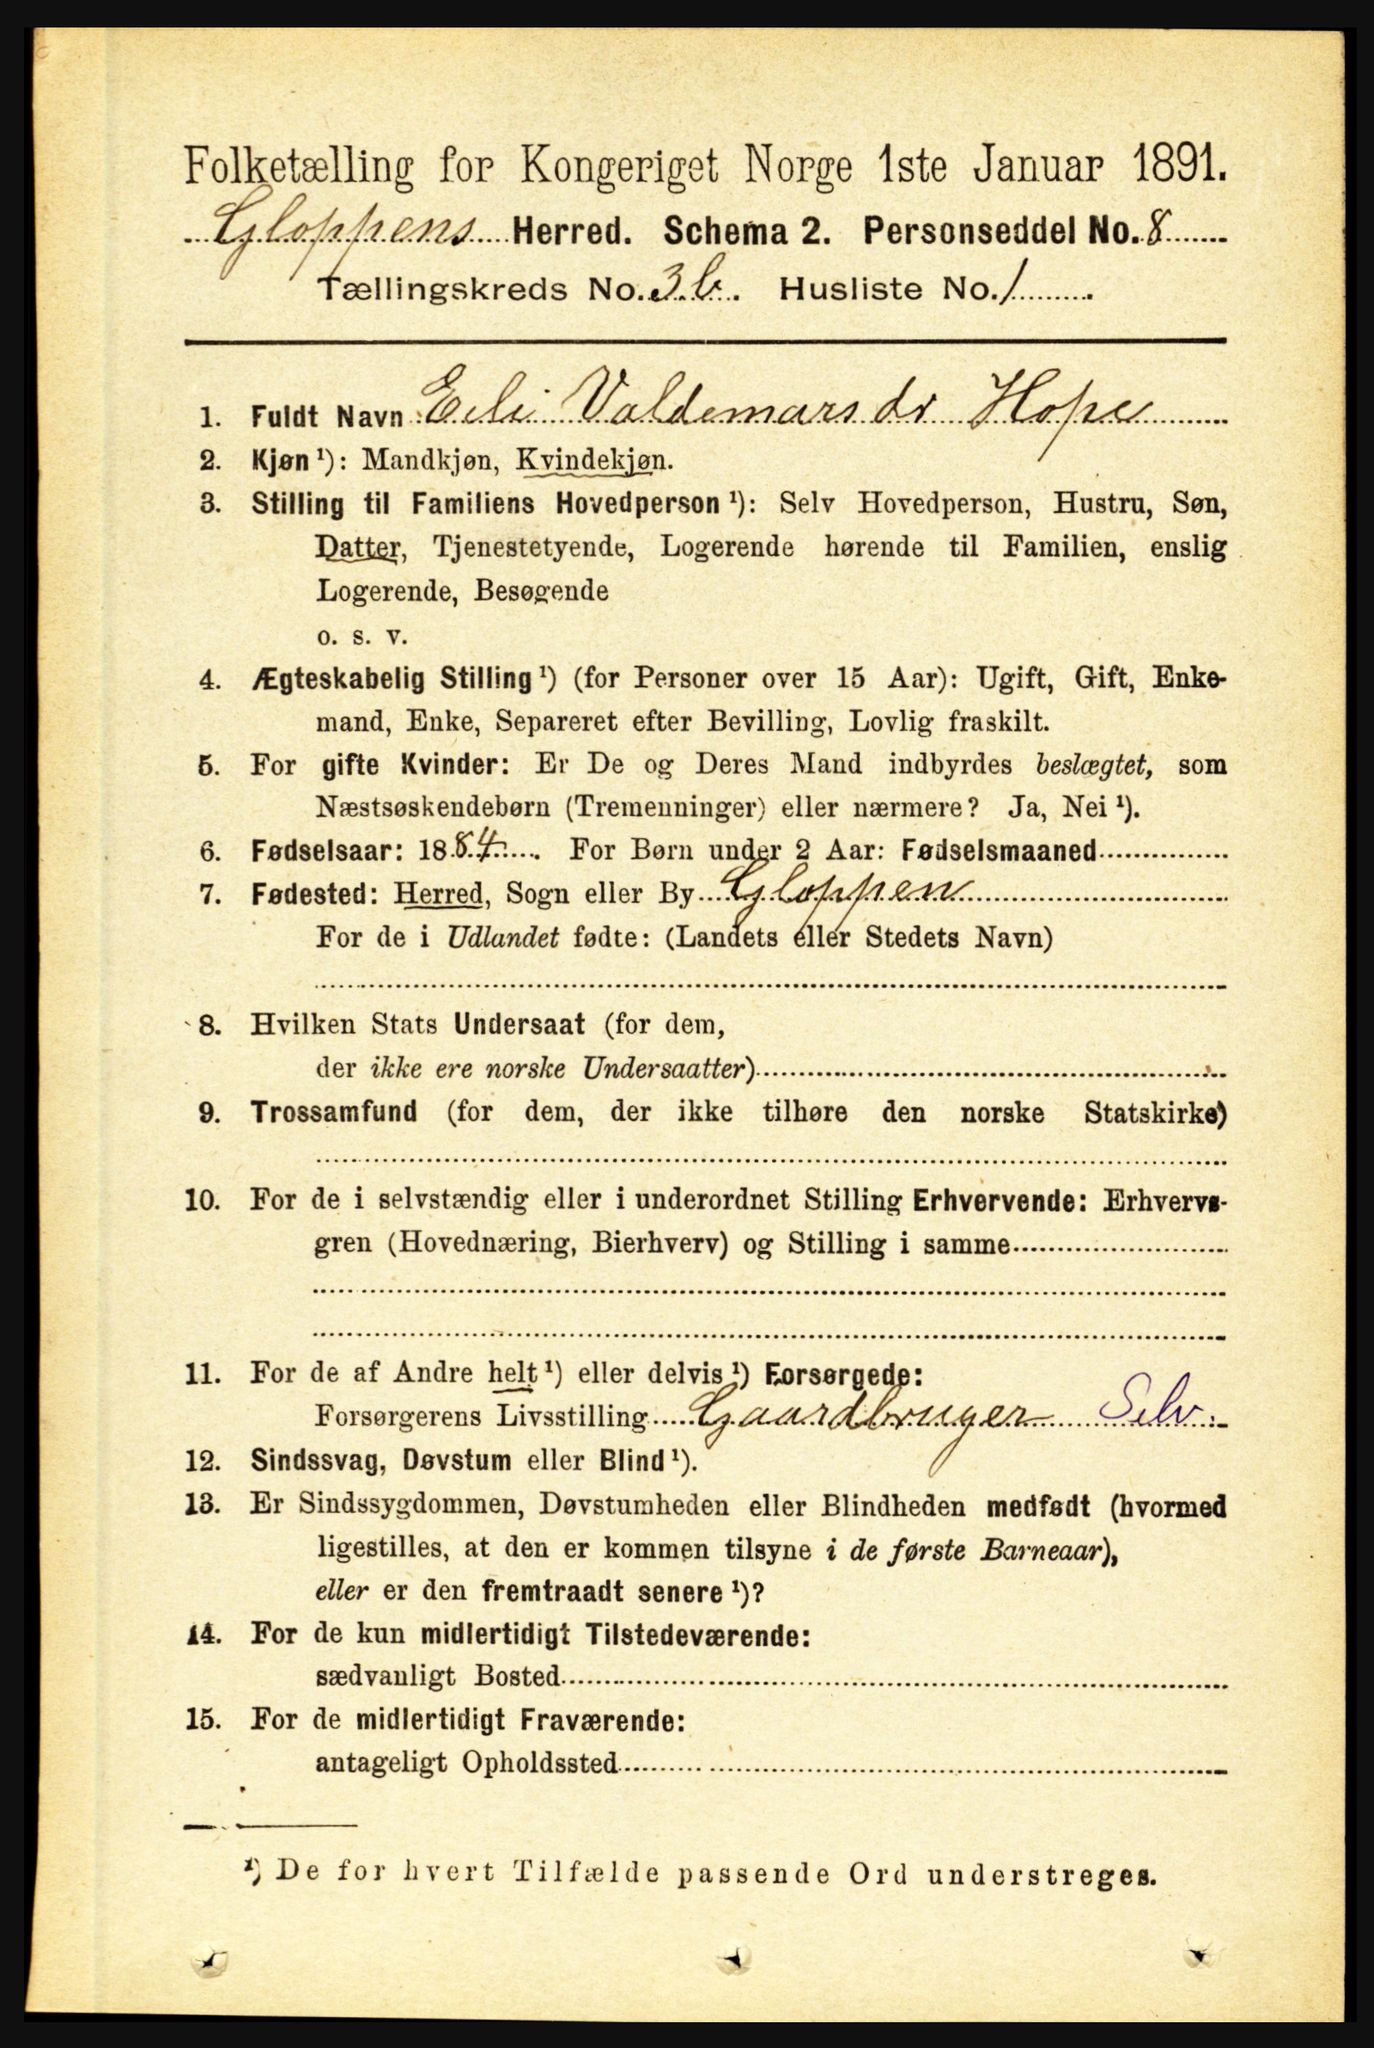 Folketælling for Kongeriget Norge 1ste Januar 1891.
Gloppens Herred. Schema 2. Personseddel No. 8
Tællingskreds No. 3 b. Husliste No. 1
1. Fuldt Navn Eeli Valdemarsdr Hope
2. Kjøn ¹): Mandkjøn, Kvindekjøn.
3. Stilling til Familiens Hovedperson ¹): Selv Hovedperson, Hustru, Søn,
Datter, Tjenestetyende, Logerende hørende til Familien, enslig
Logerende, Besøgende
o. s. v.
4. Ægteskabelig Stilling ¹) (for Personer over 15 Aar): Ugift, Gift, Enke-
mand, Enke, Separeret efter Bevilling, Lovlig fraskilt.
5. For gifte Kvinder: Er De og Deres Mand indbyrdes beslægtet, som
Næstsøskendebørn (Tremenninger) eller nærmere? Ja, Nei ¹).
6. Fødselsaar: 1884. For Børn under 2 Aar: Fødselsmaaned
7. Fødested: Herred, Sogn eller By Gloppen
For de i Udlandet fødte: (Landets eller Stedets Navn)
8. Hvilken Stats Undersaat (for dem,
der ikke ere norske Undersaatter)
9. Trossamfund (for dem, der ikke tilhøre den norske Statskirke)
10. For de i selvstændig eller i underordnet Stilling Erhvervende: Erhvervs-
gren (Hovednæring, Bierhverv) og Stilling i samme
11. For de af Andre helt ¹) eller delvis ¹) Forsørgede:
Forsørgerens Livsstilling Gaardbruger Selv.
12. Sindssvag, Døvstum eller Blind ¹).
13. Er Sindssygdommen, Døvstumheden eller Blindheden medfødt (hvormed
ligestilles, at den er kommen tilsyne i de første Barneaar),
eller er den fremtraadt senere ¹)?
14. For de kun midlertidigt Tilstedeværende:
sædvanligt Bosted
15. For de midlertidigt Fraværende:
antageligt Opholdssted
¹) De for hvert Tilfælde passende Ord understreges.